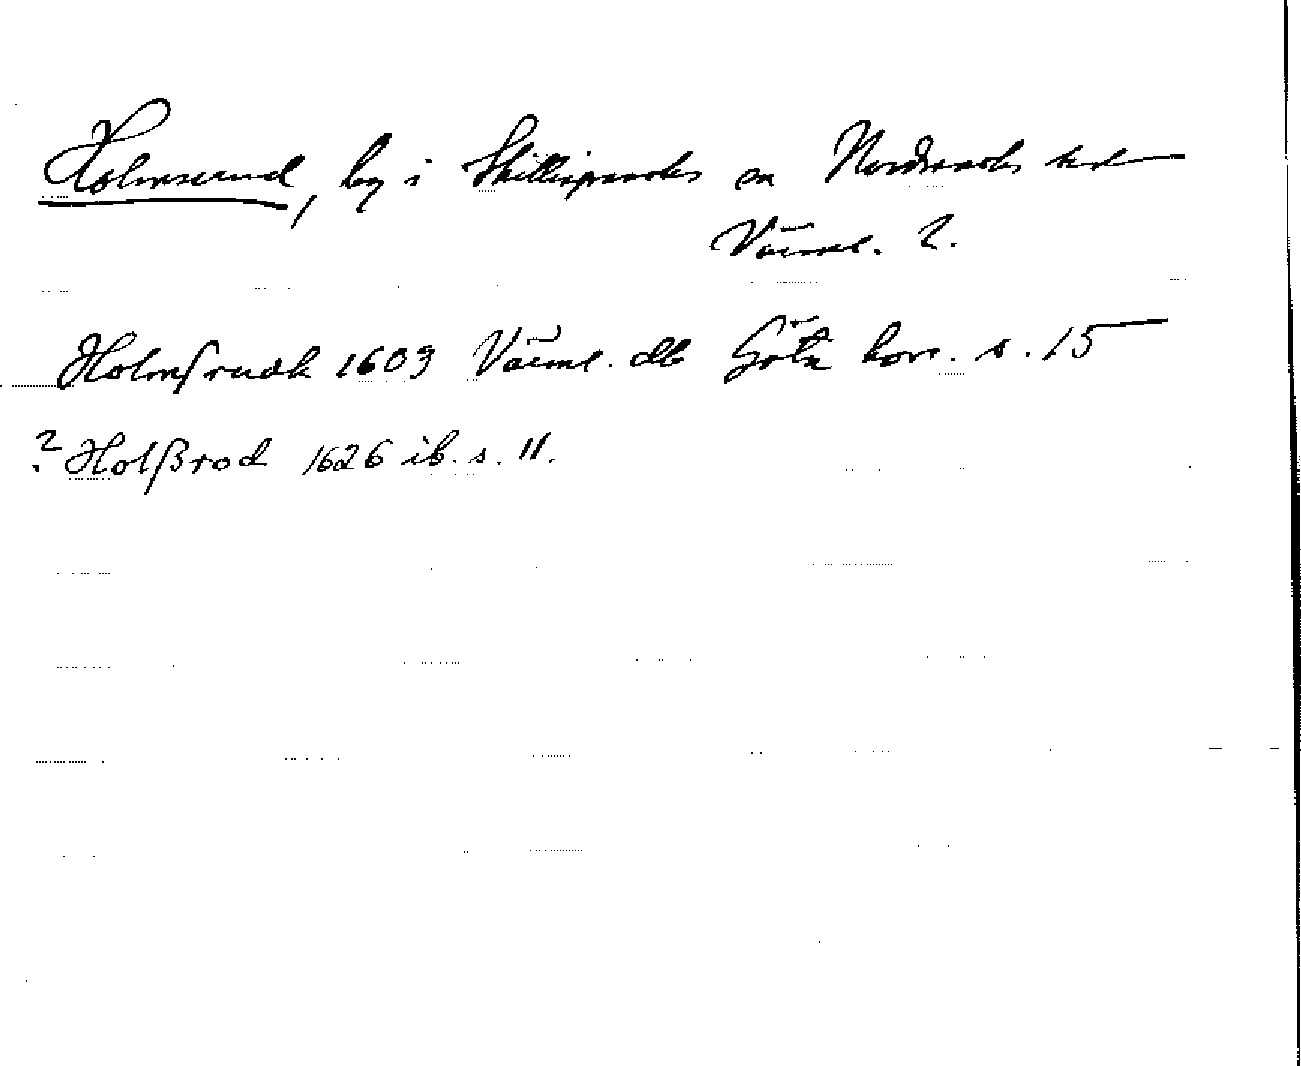 Holmserud, by i Skillingmarks sn Nordmarks hd
Värml. l.
Holmſrudh 1603 Värml. db Göta hovr. s. 15
? Holßrod 1626 ib. s. 11.